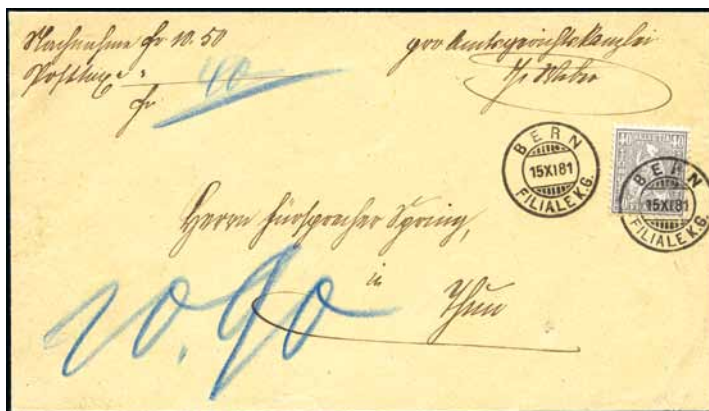 Nachnahme Fr 10.50
Posttaxe " " 40
Fr
pro Amtsgerichtskanzlei
Weber
BERN
15XI81
FILIALE K.G.
40 HELVETIA 40
BERN
15XI81
FILIALE K.G.
Herrn Fürsprecher Spring,
in
Thun
10.90